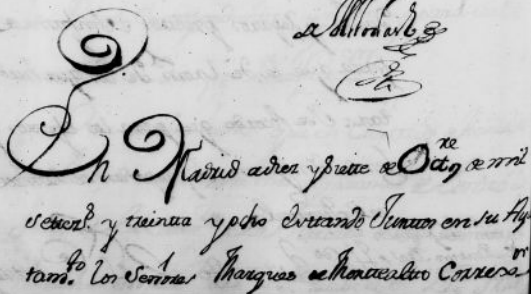 En Madrid a diez y siete de Oct.re de mil
setez.s y treinta y ocho estando Juntos en su Ayu
tam.to los Señores Marques de Montealto Correxs.r